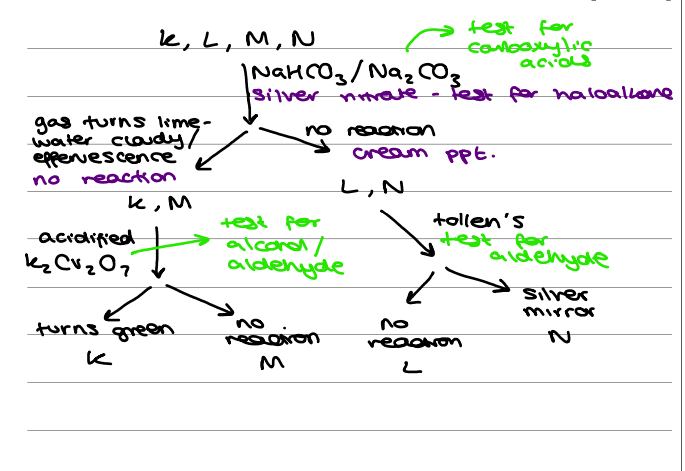 K, L, M, N
test for
carboxylic
acids
NaHCO₃/Na₂CO₃
silver nitrate - test for haloalkane
gas turns lime-
water cloudy/
effervescence
no reaction
no reaction
cream ppt.
K, M
L, N
acidified
K₂Cr₂O₇
test for
alcohol/
aldehyde
tollen's
test for
aldehyde
turns green
K
no
reaction
M
no
reaction
L
silver
mirror
N